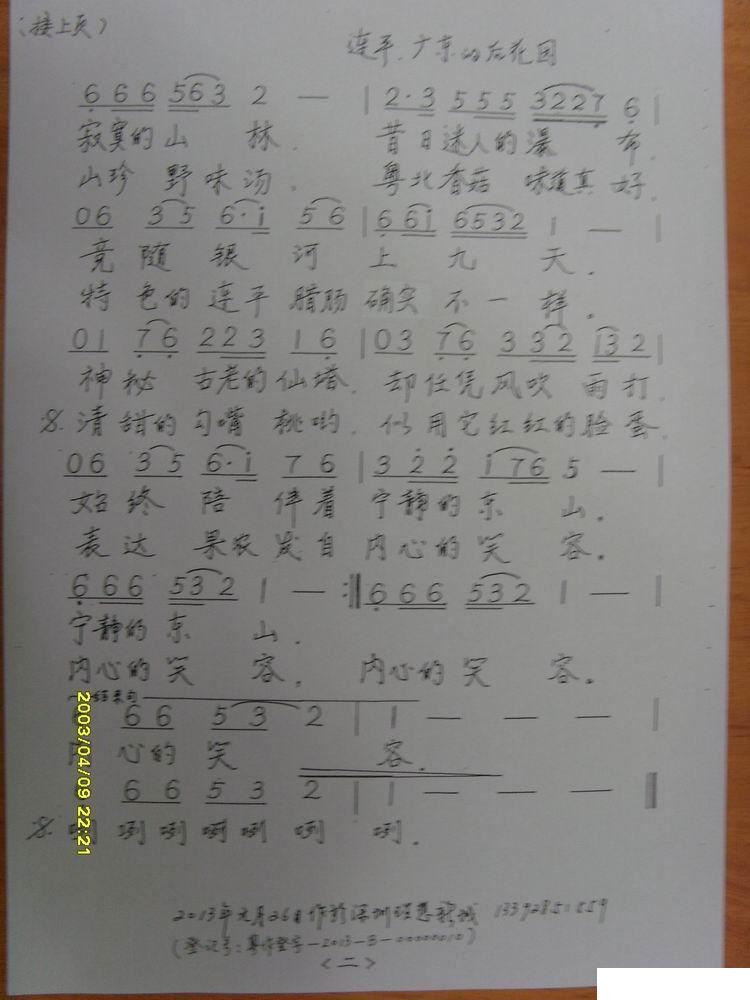 (接上页)
连平.广东的后花园
6 6 6 5 6 3 2 — | 2·3 5 5 5 3 2 2 7 6 |
寂寞的山 林. 昔日迷人的瀑 布.
山珍 野味汤. 粤北香菇 味道真好.
0 6 3 5 6·i 5 6 | 6 6 i 6 5 3 2 1 — |
竟随 银 河 上 九 天.
特色的连平 腊肠 确实 不一样.
0 1 7 6 2 2 3 1 6 | 0 3 7 6 3 3 2 i 3 2 |
神秘 古老的仙塔. 却任凭风吹 雨打.
清甜的勾嘴 桃哟. 似用它红红的脸蛋.
0 6 3 5 6·i 7 6 | 3 2 2 i 7 6 5 — |
始终 陪 伴着 宁静的东 山.
表达 果农发自 内心的笑 容.
6 6 6 5 3 2 1 — :‖ 6 6 6 5 3 2 1 — |
宁静的东 山.
内心的笑 容. 内心的笑 容.
结束句
6 6 5 3 2 | 1 — — — |
内心的笑 容.
6 6 5 3 2 | 1 — — — ‖
咧 咧 咧 咧 咧 咧 咧.
2013年元月26日作於深圳理想新城
(登记号:粤作登字-2013-B-00000010)
<二>
2003/04/09 22:21